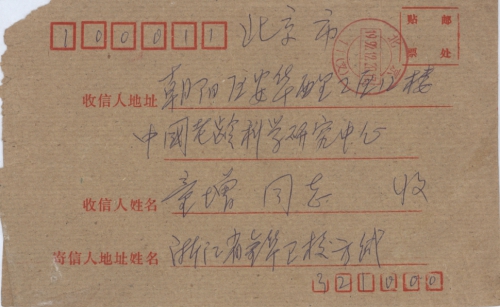 100011 北京市
贴 邮
票 处
收信人地址 朝阳区安华西里二区12楼
中国老龄科学研究中心
收信人姓名 童增 同志 收
寄信人地址姓名 浙江省金华卫校方
321000